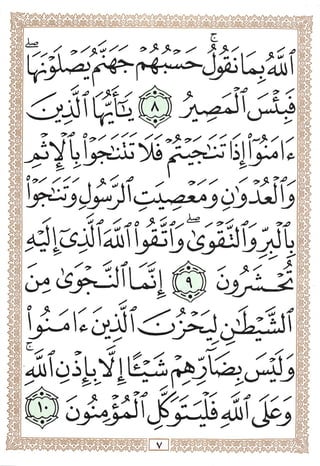 ٱللَّهُ بِمَا نَقُولُ ۚ حَسْبُهُمْ جَهَنَّمُ يَصْلَوْنَهَا ۖ
فَبِئْسَ ٱلْمَصِيرُ ٨ يَـٰٓأَيُّهَا ٱلَّذِينَ
ءَامَنُوٓا۟ إِذَا تَنَـٰجَيْتُمْ فَلَا تَتَنَـٰجَوْا۟ بِٱلْإِثْمِ
وَٱلْعُدْوَٰنِ وَمَعْصِيَتِ ٱلرَّسُولِ وَتَنَـٰجَوْا۟
بِٱلْبِرِّ وَٱلتَّقْوَىٰ ۖ وَٱتَّقُوا۟ ٱللَّهَ ٱلَّذِىٓ إِلَيْهِ
تُحْشَرُونَ ٩ إِنَّمَا ٱلنَّجْوَىٰ مِنَ
ٱلشَّيْطَـٰنِ لِيَحْزُنَ ٱلَّذِينَ ءَامَنُوا۟
وَلَيْسَ بِضَآرِّهِمْ شَيْـًٔا إِلَّا بِإِذْنِ ٱللَّهِ ۚ
وَعَلَى ٱللَّهِ فَلْيَتَوَكَّلِ ٱلْمُؤْمِنُونَ ١٠
٧